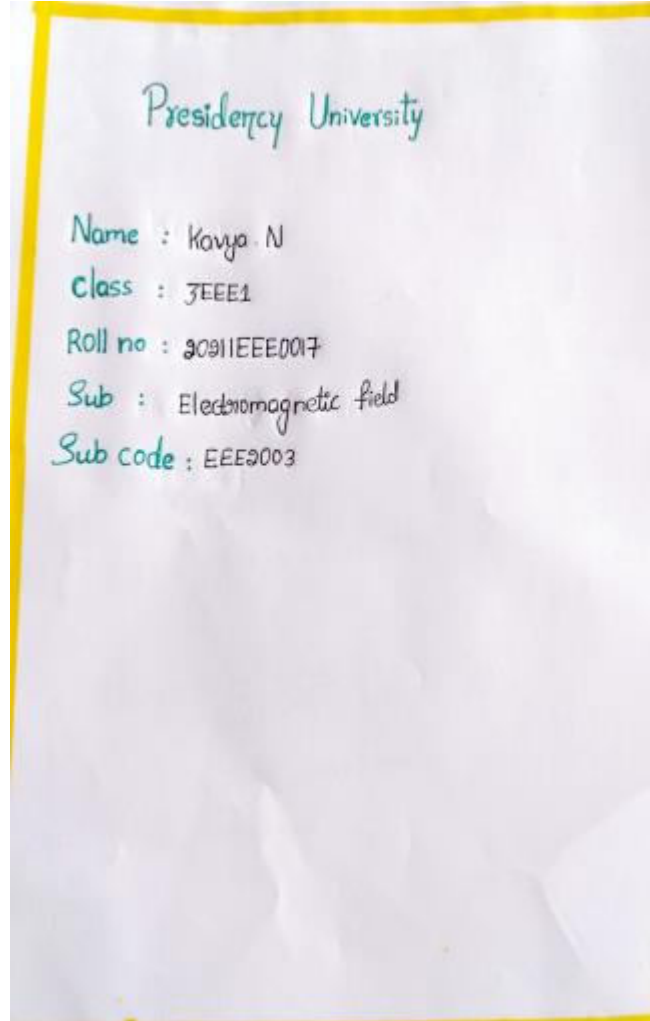 Presidency University
Name : Kavya N
Class : 3EEE1
Roll no : 20211EEE0017
Sub : Electromagnetic field
Sub code : EEE2003